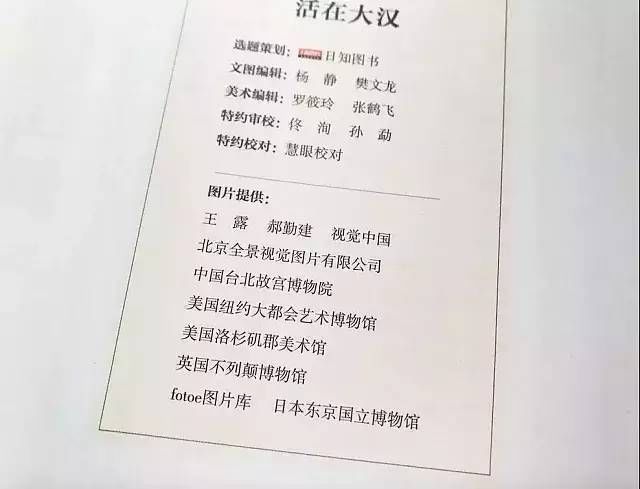 活在大汉
选题策划：日知图书
文图编辑：杨 静 樊文龙
美术编辑：罗筱玲 张鹤飞
特约审校：佟 洵 孙 勐
特约校对：慧眼校对
图片提供：
王 露 郝勤建 视觉中国
北京全景视觉图片有限公司
中国台北故宫博物院
美国纽约大都会艺术博物馆
美国洛杉矶郡美术馆
英国不列颠博物馆
fotoe图片库 日本东京国立博物馆